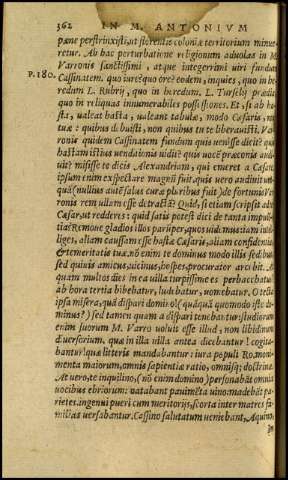 362 IN M. ANTONIVM
pæne perstrinxisti, ut florentis coloniæ territorium minue
retur. Ab hac perturbatione religionum aduolas in M.
Varronis sanctissimi, atque integerrimi uiri fundum
P. 180. Cassinatem. quo iure? quo ore? eodem, inquies, quo in he
redum L. Rubrij, quo in heredum L. Turselij prædia
quo in reliquas innumerabiles possessiones. Et, si ab ha
sta, ualeat hasta, ualeant tabulæ, modo Cæsaris, non
tuæ: quibus debuisti, non quibus tu te liberauisti. Var
ronis quidem Cassinatem fundum quis uenisse dicit? quis
hastam istius uenditionis uidit? quis uocẽ præconis audi
uit? misisse te dicis Alexandriam, qui emeret a Cæsare.
ipsum enim exspectare magnũ fuit. quis uero audiuit un
quã (nullius autẽ salus curæ pluribus fuit) de fortunis Var
ronis rem ullam esse detractã? Quid, si etiam scripsit ad te
Cæsar, ut redderes: quid satis potest dici de tanta impudẽ
tia? Remoue gladios illos parũper, quos uidemus: iam intel
liges, aliam caussam esse hastæ Cæsaris, aliam confidentiæ,
& temeritatis tuæ. nõ enim te dominus modo illis sedibus,
sed quiuis amicus, uicinus, hospes, procurator arcebit. At
quam multos dies in ea uilla turpissime es perbacchatus.
ab hora tertia bibebatur, ludebatur, uomebatur. O tecta
ipsa misera, quã dispari domino! (quãquã quomodo iste do
minus?) sed tamen quam a dispari tenebantur: studiorum
enim suorum M. Varro uoluit esse illud, non libidinum
diuersorium. quæ in illa uilla antea dicebantur! cogita
bantur! quæ litteris mandabantur: iura populi Ro. monu
menta maiorum, omnis sapientiæ ratio, omnisq; doctrinæ.
At uero, te inquilino, (nõ enim domino) personabãt omnia
uocibus ebriorum: natabant pauimẽta uino: madebãt pa
rietes. ingenui pueri cum meritorijs, scorta inter matres fa
milias uersabantur. Cassino salutatum ueniebant, Aquino,